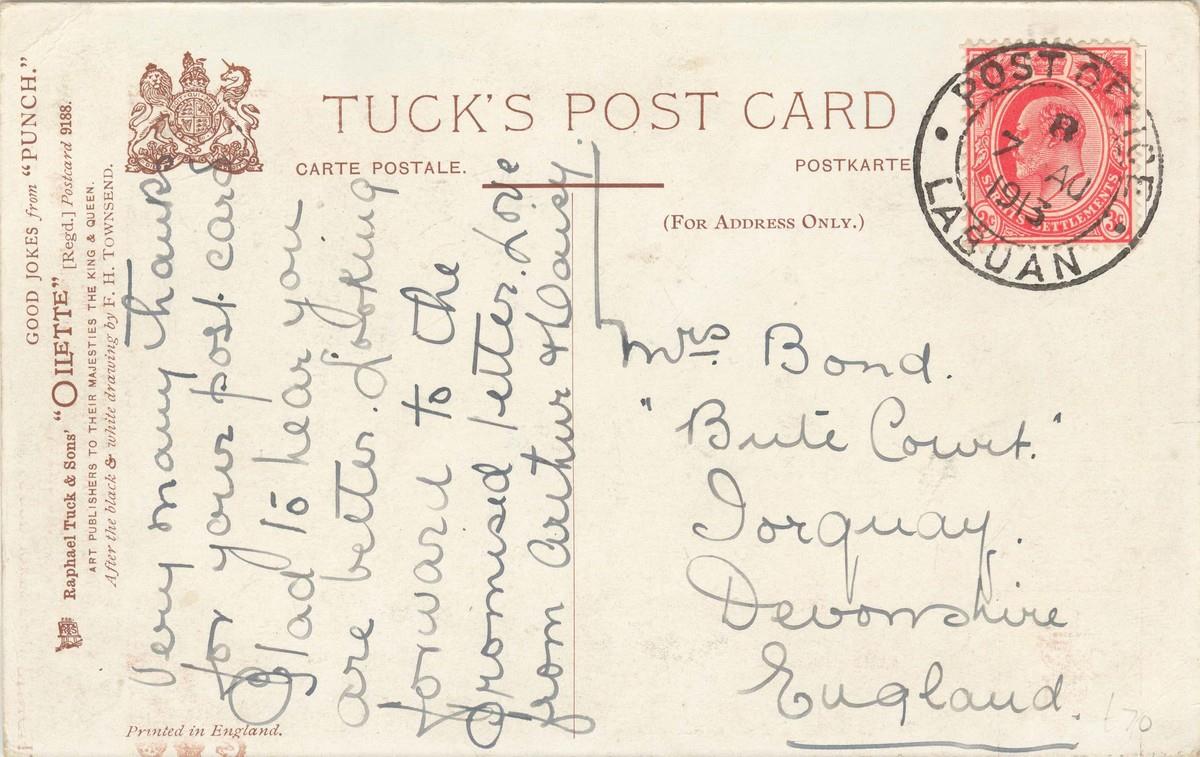 GOOD JOKES from "PUNCH."
Raphael Tuck & Sons' "OILETTE" [Regd.] Postcard 9188.
ART PUBLISHERS TO THEIR MAJESTIES THE KING & QUEEN.
After the black & white drawing by F. H. TOWNSEND.
TUCK'S POST CARD
CARTE POSTALE.
POSTKARTE
(FOR ADDRESS ONLY.)
Very many thanks
for your post card
Glad to hear you
are better. Looking
forward to the
promised letter. Love
from Arthur & Daisy.
POST OFFICE
B
7 AU
1913
LABUAN
SETTLEMENTS
3c
Mrs Bond.
"Bute Court."
Torquay.
Devonshire
England.
Printed in England.
£70